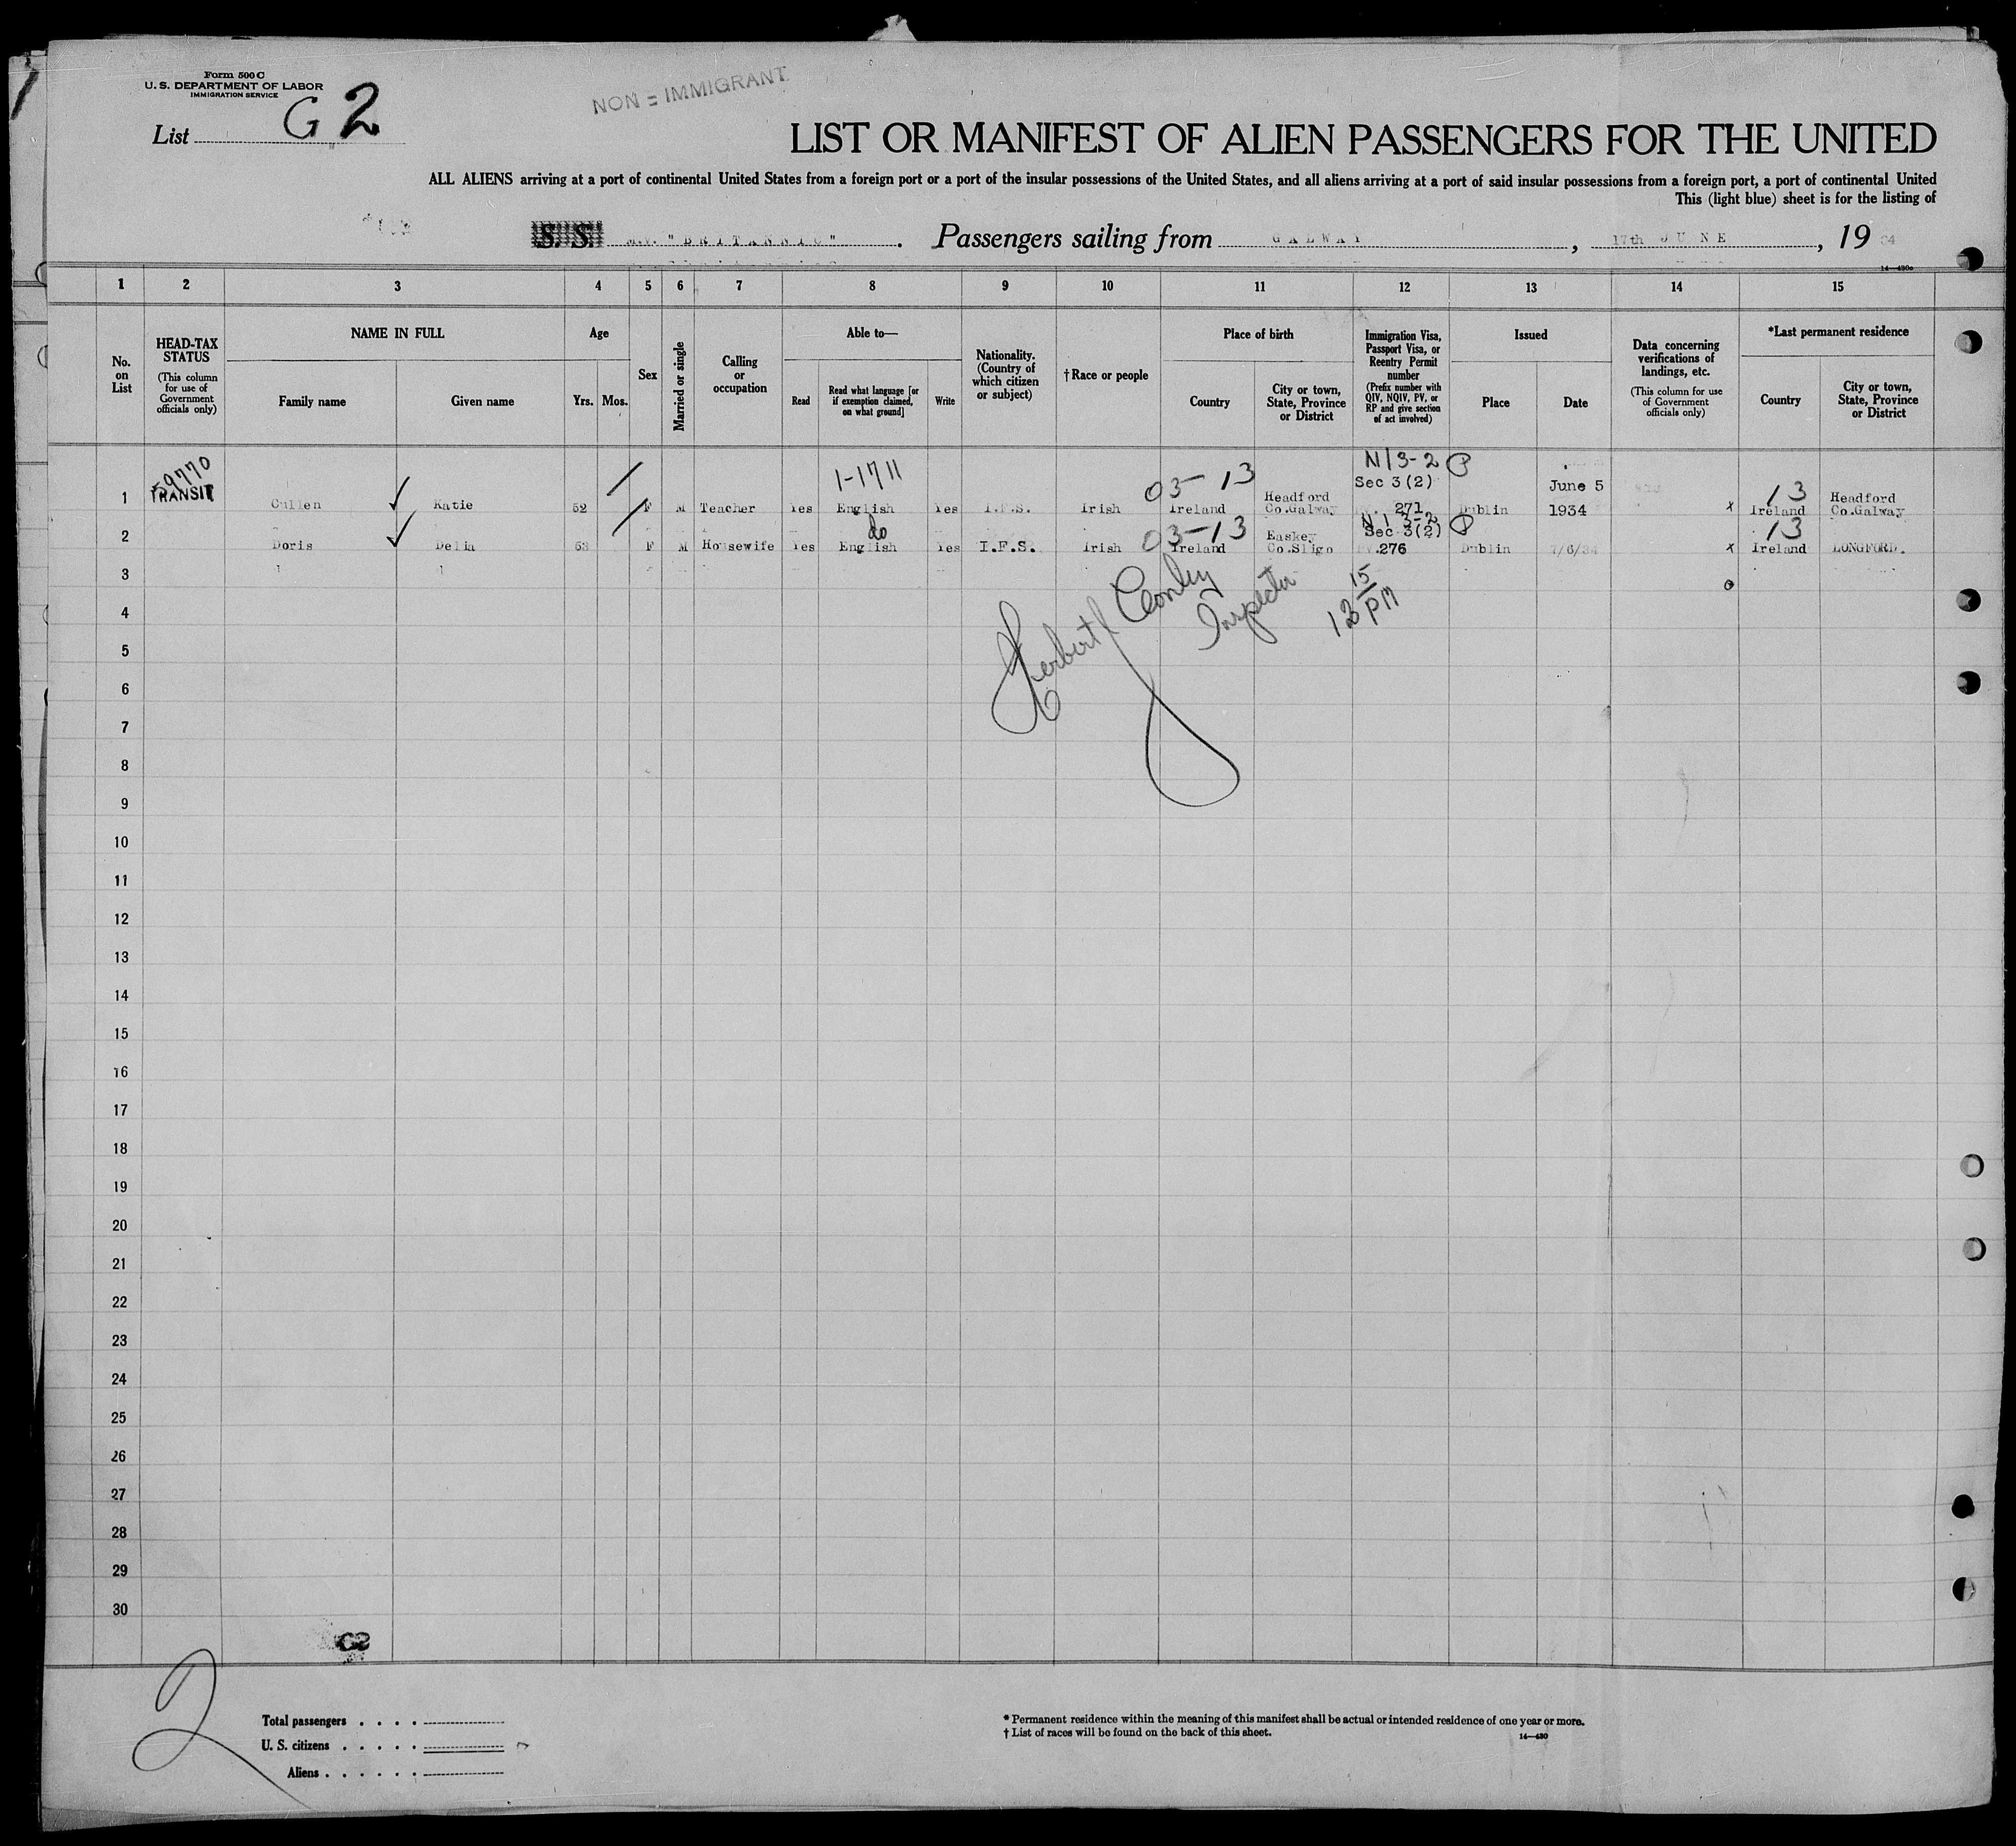 Form 500 C
U. S. DEPARTMENT OF LABOR
IMMIGRATION SERVICE
List G 2
NON = IMMIGRANT
LIST OR MANIFEST OF ALIEN PASSENGERS FOR THE UNITED
ALL ALIENS arriving at a port of continental United States from a foreign port or a port of the insular possessions of the United States, and all aliens arriving at a port of said insular possessions from a foreign port, a port of continental United
This (light blue) sheet is for the listing of
S. S. M.V. "BRITANNIC". Passengers sailing from GALWAY, 17th JUNE, 1934
14—430c
1 2 3 4 5 6 7 8 9 10 11 12 13 14 15
No. on List
HEAD-TAX STATUS
(This column for use of Government officials only)
NAME IN FULL
Family name
Given name
Age
Yrs. Mos.
Sex
Married or single
Calling or occupation
Able to—
Read
Read what language [or if exemption claimed, on what ground]
Write
Nationality. (Country of which citizen or subject)
†Race or people
Place of birth
Country
City or town, State, Province or District
Immigration Visa, Passport Visa, or Reentry Permit number
(Prefix number with QIV, NQIV, PV, or RP and give section of act involved)
Issued
Place
Date
Data concerning verifications of landings, etc.
(This column for use of Government officials only)
*Last permanent residence
Country
City or town, State, Province or District
59770 1-1711 03-13 N13-2 P
TRANSIT Sec 3(2) June 5 13
1 Cullen Katie 52 F M Teacher Yes English Yes I.F.S. Irish Ireland Headford Co.Galway 271 Dublin 1934 x Ireland Headford Co.Galway
do 03-13 N13-2 P 13
Sec 3(2)
2 Doris Delia 53 F M Housewife Yes English Yes I.F.S. Irish Ireland Easkey Co.Sligo PV.276 Dublin 7/6/34 x Ireland LONGFORD.
3
4
5
6
7
8
9
10
11
12
13
14
15
16
17
18
19
20
21
22
23
24
25
26
27
28
29
30
Herbert Conley
Inspector
12 15 PM
G2
2
Total passengers . . . .
U. S. citizens . . . . .
Aliens . . . . . .
* Permanent residence within the meaning of this manifest shall be actual or intended residence of one year or more.
† List of races will be found on the back of this sheet.
14—430